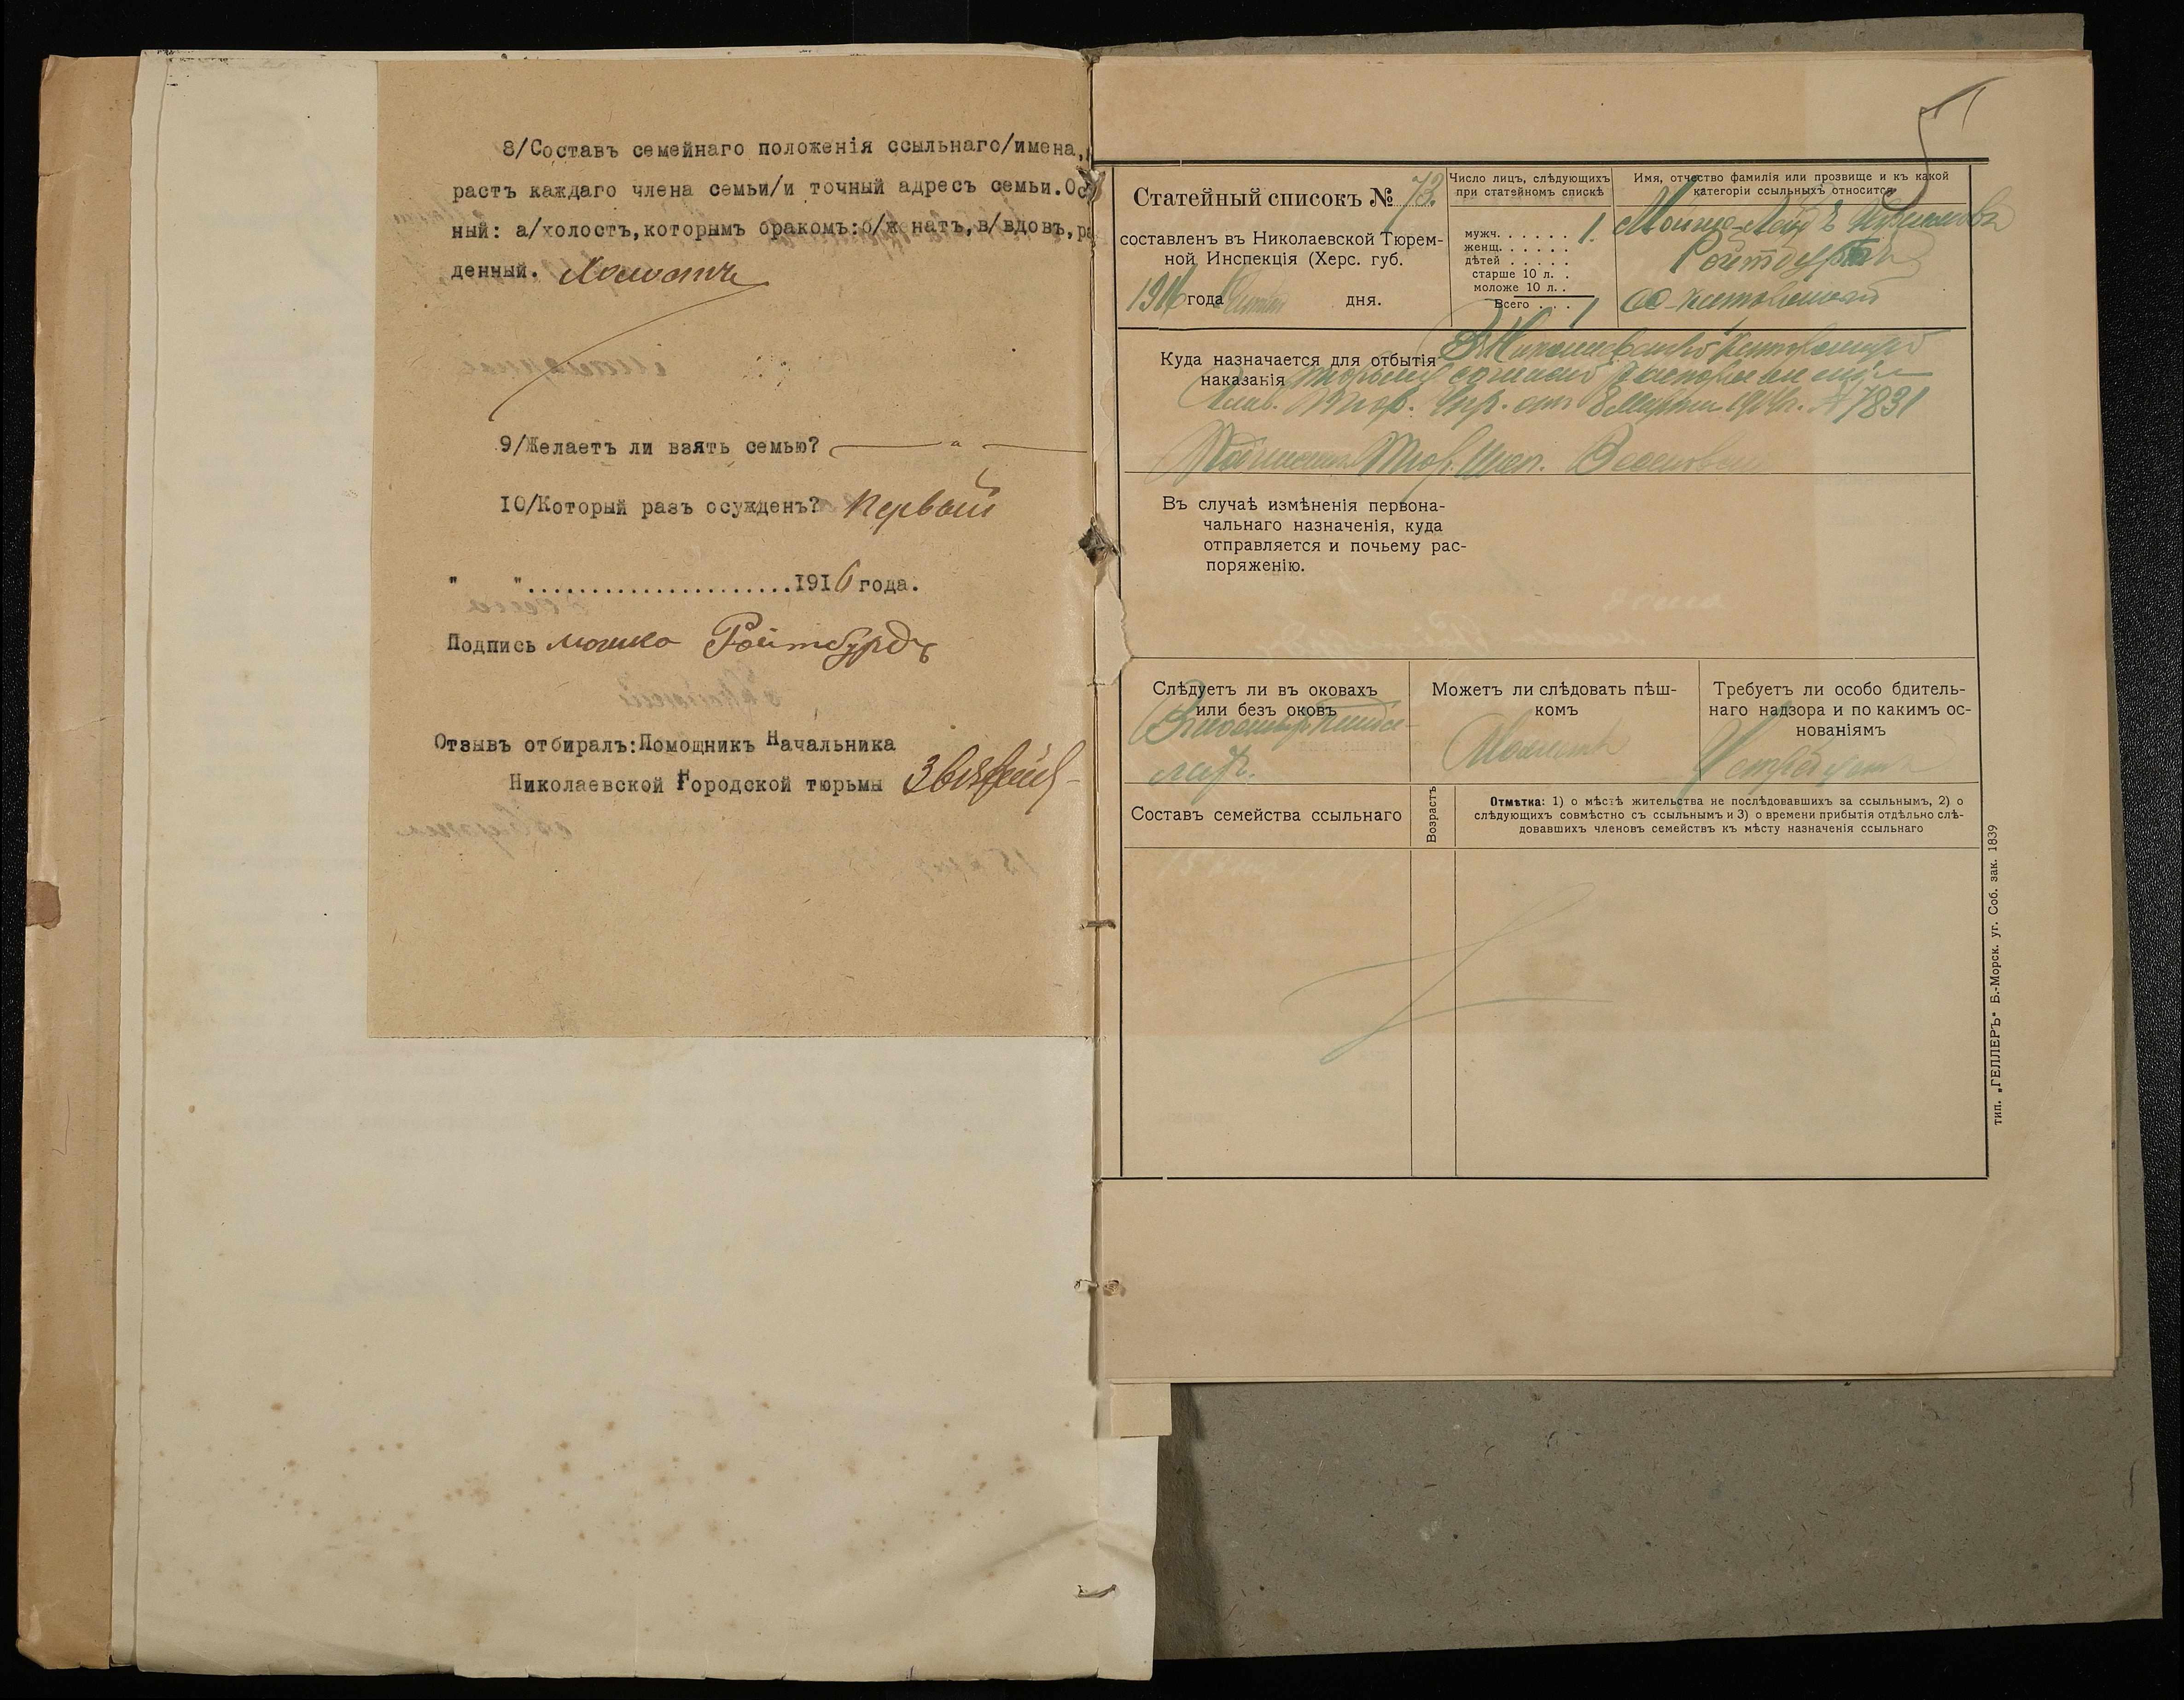 8/Составъ семейнаго положенія ссыльнаго/имена,
растъ каждаго члена семьи/и точный адресъ семьи.Ос
ный: а/холостъ,которымъ бракомъ:б/ж натъ,в/вдовъ,ра
денный. Холостъ
9/Желаетъ ли взять семью? — " —
10/Который разъ осужденъ? Первый
" "......................1916 года.
Подпись мошко Ройтбурдъ
Отзывъ отбиралъ:Помощникъ Начальника
Николаевской Городской тюрьмы
Статейный списокъ № 73.
составленъ въ Николаевской Тюрем-
ной Инспекціи (Херс. губ.
1916 года дня.
Число лицъ, слѣдующихъ
при статейномъ спискѣ
мужч. . . . . . 1.
женщ. . . . . .
дѣтей . . . . .
старше 10 л. . .
моложе 10 л. .
Всего . . . 1
Имя, отчество фамилія или прозвище и къ какой
категоріи ссыльныхъ относится
Ройтбурдъ
Куда назначается для отбытія В Николаевскую каторжную
наказанія тюрьму согласно распоряженія
Глав. Тюр. Упр. от 8 Марта 1916г. № 7831
Подписалъ Тюр. Инсп.
Въ случаѣ измѣненія первона-
чальнаго назначенія, куда
отправляется и почьему рас-
поряженію.
Слѣдуетъ ли въ оковахъ
или безъ оковъ
Можетъ ли слѣдовать пѣш-
комъ
Можетъ
Требуетъ ли особо бдитель-
наго надзора и по какимъ ос-
нованіямъ
Составъ семейства ссыльнаго
Возрастъ
Отмѣтка: 1) о мѣстѣ жительства не послѣдовавшихъ за ссыльнымъ, 2) о
слѣдующихъ совмѣстно съ ссыльнымъ и 3) о времени прибытія отдѣльно слѣ-
довавшихъ членовъ семействъ къ мѣсту назначенія ссыльнаго
тип. „ГЕЛЛЕРЪ" Б.-Морск. уг. Соб. зак. 1839